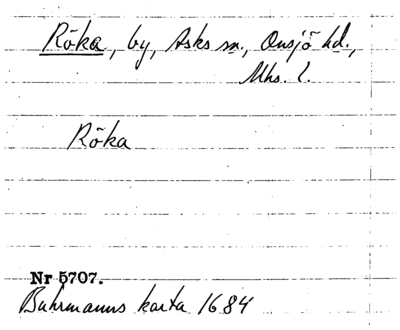 Röka, by, Asks sn., Onsjö hd.,
Mhs. l.
Röka
Nr 5707.
Buhrmanns karta 1684